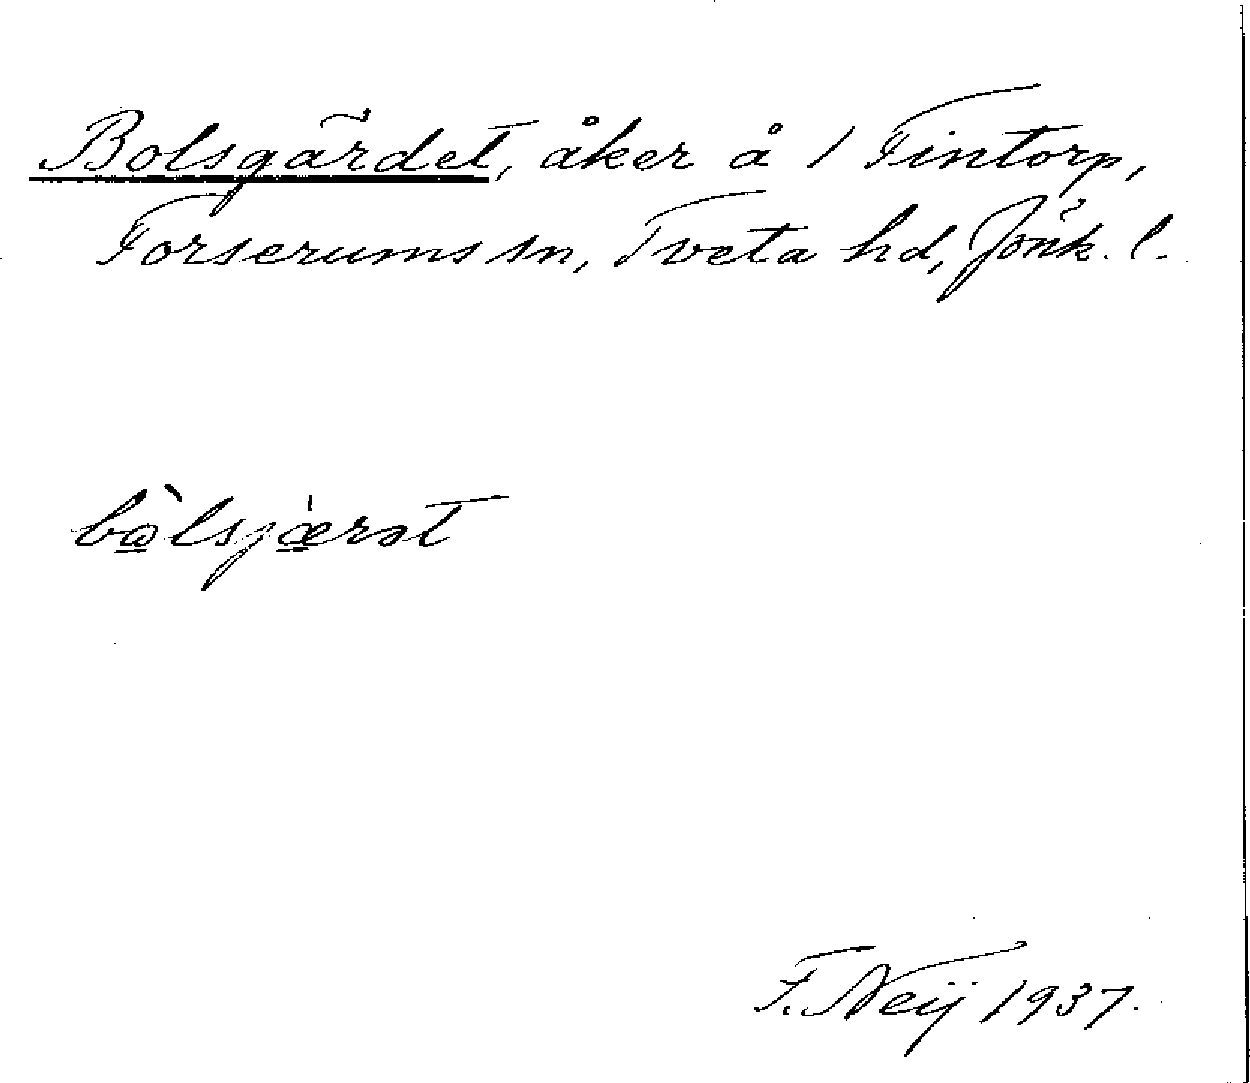 Bolsgärdet, åker å 1 Fintorp,
Forserums sn, Tveta hd, Jönk. l.
bə̀lsjæ̀rət
F. Neij 1937.